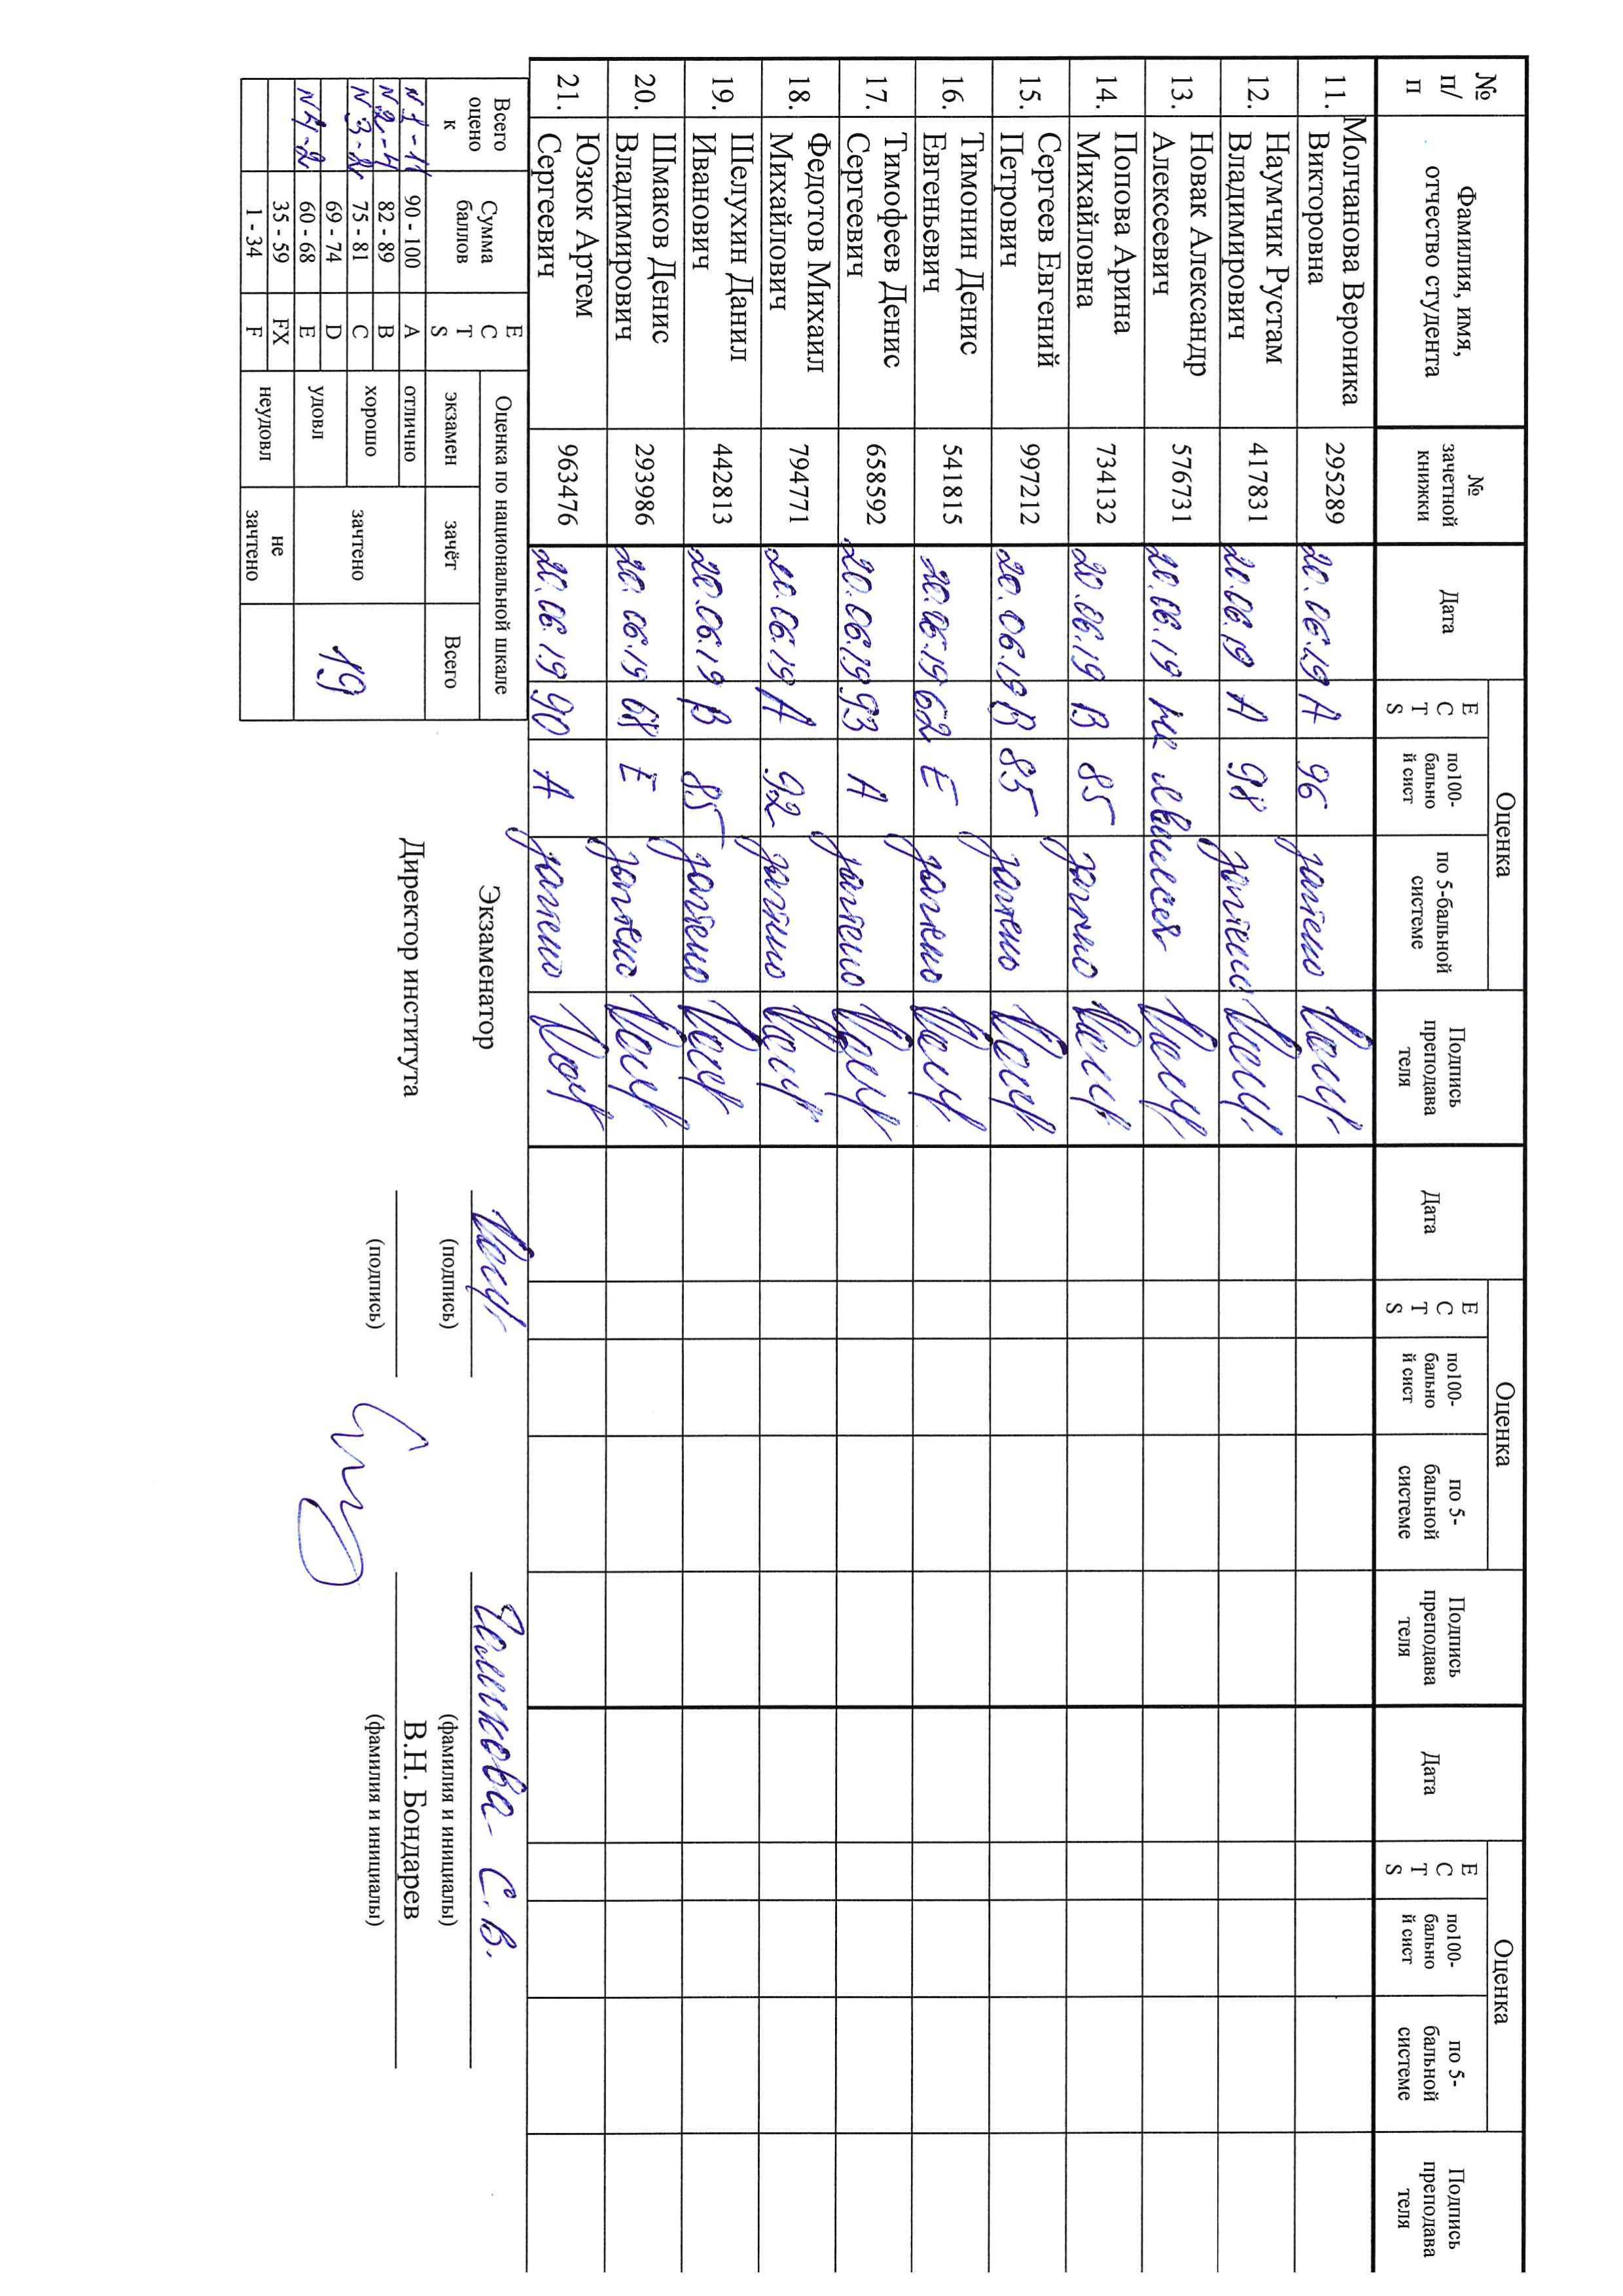 № п/п Фамилия, имя, отчество студента № зачетной книжки Дата Оценка ECTS по100-бальной сист по 5-бальной системе Подпись преподавателя Дата Оценка ECTS по100-бальной сист по 5-бальной системе Подпись преподавателя Дата Оценка ECTS по100-бальной сист по 5-бальной системе Подпись преподавателя
11. Молчанова Вероника Викторовна 295289 20.06.19 A 96 зачтено
12. Наумчик Рустам Владимирович 417831 20.06.19 A 98 зачтено
13. Новак Александр Алексеевич 576731 20.06.19 не явился
14. Попова Арина Михайловна 734132 20.06.19 B 85 зачтено
15. Сергеев Евгений Петрович 997212 20.06.19 B 85 зачтено
16. Тимонин Денис Евгеньевич 541815 20.06.19 62 E зачтено
17. Тимофеев Денис Сергеевич 658592 20.06.19 93 A зачтено
18. Федотов Михаил Михайлович 794771 20.06.19 A 92 зачтено
19. Шелухин Данил Иванович 442813 20.06.19 B 85 зачтено
20. Шмаков Денис Владимирович 293986 20.06.19 68 E зачтено
21. Юзюк Артем Сергеевич 963476 20.06.19 90 A зачтено
Всего оценок Сумма баллов ECTS Оценка по национальной шкале
экзамен зачёт Всего
N1-11 90 - 100 A отлично
N2-4 82 - 89 B хорошо
N3-2 75 - 81 C зачтено 19
69 - 74 D удовл
N4-2 60 - 68 E
35 - 59 FX неудовл не зачтено
1 - 34 F
Экзаменатор С.В.
(подпись) (фамилия и инициалы)
Директор института В.Н. Бондарев
(подпись) (фамилия и инициалы)